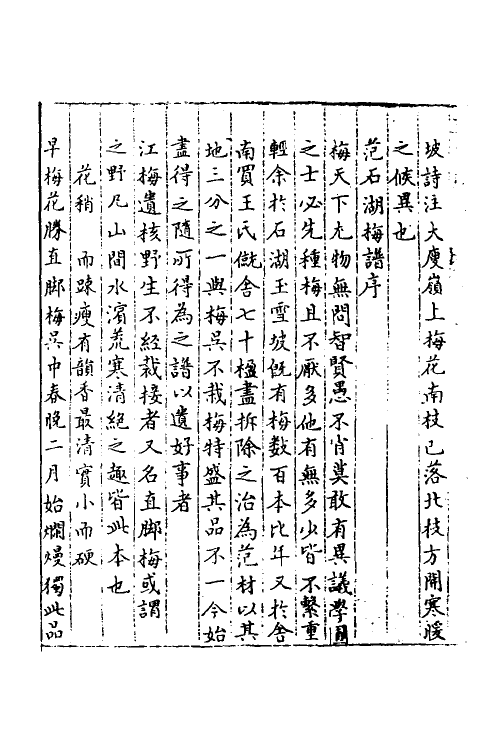 坡詩注大庾嶺上梅花南枝已落北枝方開寒暖
之候異也
范石湖梅譜序
梅天下尤物無問智賢愚不肖莫敢有異議學圃
之士必先種梅且不厭多他有無多少皆不繫重
輕余於石湖玉雪坡既有梅數百本比年又於舍
南買王氏僦舍七十楹盡拆除之治為范村以其
地三分之一與梅吳下栽梅特盛其品不一今始
盡得之隨所得為之譜以遺好事者
江梅遺核野生不經栽接者又名直脚梅或謂
之野凡山間水濱荒寒清絕之趣皆此本也
花稍 而踈瘦有韻香最清實小而硬
早梅花勝直脚梅吳中春晚二月始爛熳獨此品